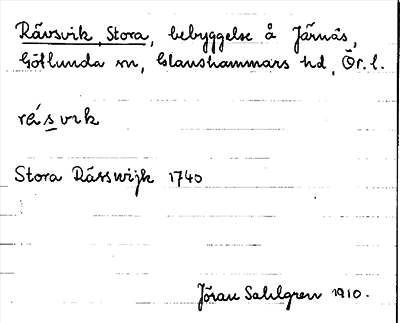 Rävsvik, Stora, bebyggelse å Järnäs,
Götlunda sn, Glanshammars hd, Ör. l.
räsvik
Stora Rässwijk 1740
Jöran Sahlgren 1910.